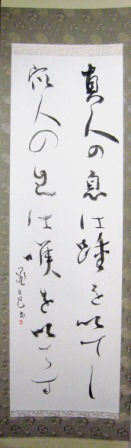 真人の息は踵を以てし
衆人の息は喉を以てす